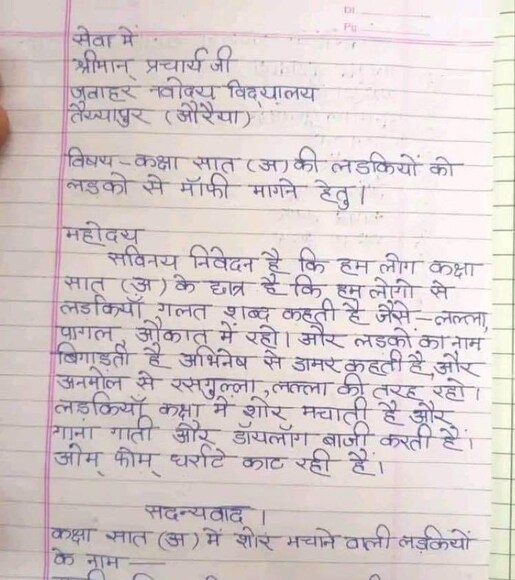 सेवा में
श्रीमान् प्रचार्य जी
जवाहर नवोदय विद्यालय
तैय्यापुर (औरैया)
विषय - कक्षा सात (अ) की लडकियों को
लडको से मॉफी मागने हेतु।
महोदय
सविनय निवेदन है कि हम लोग कक्षा
सात (अ) के छात्र है कि हम लोगो से
लडकियाँ गलत शब्द कहती है जैसे - लल्ला,
पागल औकात में रहो। और लडकों का नाम
बिगाडती है अभिनेष से डामर कहती है, और
अनमोल से रसगुल्ला, लल्ला की तरह रहो।
लडकियाँ कक्षा में शोर मचाती है और
गाना गाती और डॉयलॉग बाजी करती है।
ओम् फोम् धर्राटे काट रही है।
सदन्यवाद।
कक्षा सात (अ) में शोर मचाने वाली लडकियों
के नाम —